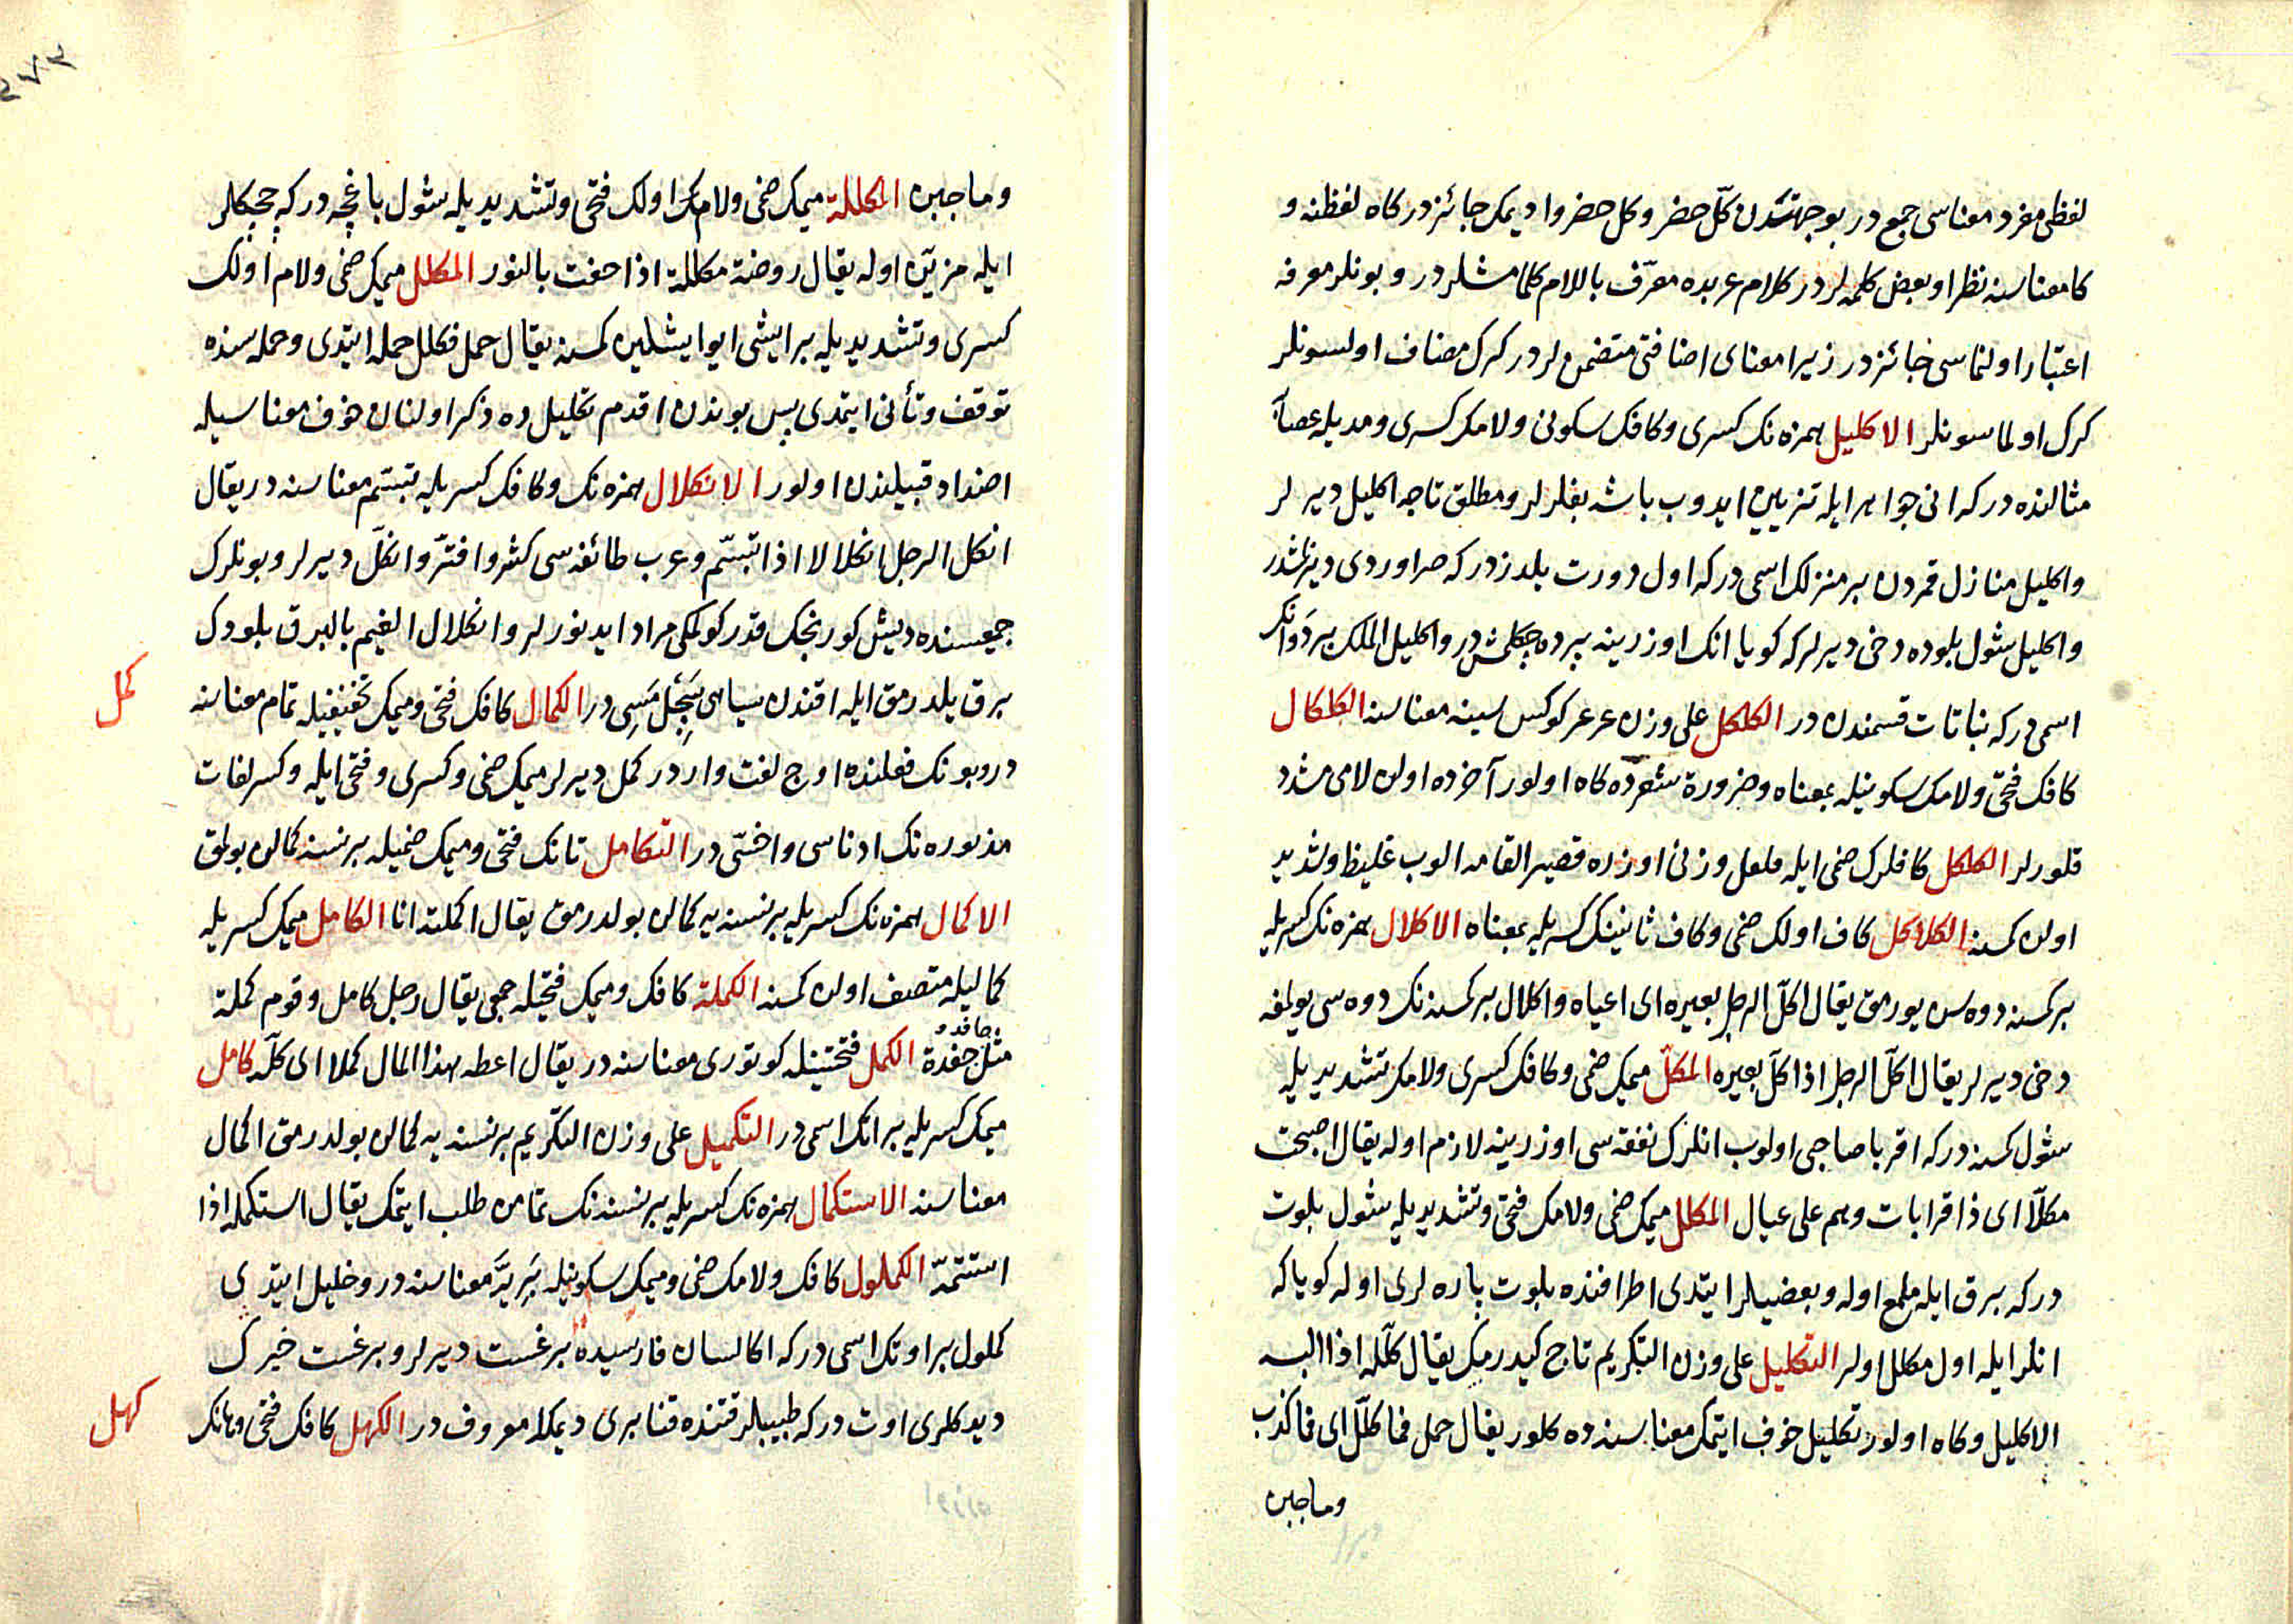 لفظى مفرد معناسى جمع در بو جهتدن كلّ حضر وكل حضروا ديمك جائز در كاه لفظنه و
كا معناسنه نظرا وبعض كلمه لر در كلام عربده معرّف باللام كلامشلر در وبونلر معرفه
اعتبار اولنماسى جائز در زيرا معناى اضافتى متضمن لر در كرك مضاف اولسونلر
كرك اولماسونلر الاكليل همزه نك كسرى وكافك سكونى ولامك كسرى ومديله عصابه
مثالنده در كه انى جواهر ايله تزيين ايدوب باشه بغلرلر ومطلق تاجه اكليل ديرلر
واكليل منازل قمردن بر منزلك اسمى در كه اول دورت يلدزدر كه صراوردى ديزلمشدر
واكليل شول بلوده دخى ديرلر كه كويا انك اوزرينه پرده چكلمش در واكليل الملك بر دوانك
اسمى در كه نباتات قسمندن در الكلكل على وزن عرعر كوكس سينه معناسنه الكلكال
كافك فتحى ولامك سكونيله بمعناه وضرورة شعرده كاه اولور آخرده اولان لامى مشدد
قلورلر الكلكل كافلرك ضمى ايله فلفل وزنى اوزره قصير القامه الوب غليظ وشديد
اولان كمسنه الكلاكل كاف اولك ضمى وكاف ثانينك كسريله بمعناه الاكلال همزه نك كسريله
بر كمسنه دوه سن يورمق يقال اكلّ الرجل بعيره اى اعياه واكلال بر كمسنه نك دوه سى يورلمغه
دخى ديرلر يقال اكلّ الرجل اذا كلّ بعيره المكلّ ميمك ضمى وكافك كسرى ولامك تشديديله
شول كمسنه در كه اقربا صاحبى اولوب انلرك نفقه سى اوزرينه لازم اوله يقال اصبحت
مكلّا اى ذا قرابات وهم على عيال المكلل ميمك ضمى ولامك فتحى وتشديديله شول بلوت
در كه برق ايله ملمع اوله وبعضيلر ايتدى اطرافنده بلوت پاره لرى اوله كويا كه
انلر ايله اول مكلل اولر التكليل على وزن التكريم تاج كيدرمك يقال كلّله اذا البسه
الاكليل وكاه اولور تكليل خوف ايتمك معناسنه ده كلور يقال حمل فما كلّل اى فما كذب
وما جبن
وما جبن المكللة ميمك ضمى ولامك اولك فتحى وتشديديله شول باغچه در كه چچكلر
ايله مزيّن اوله يقال روضة مكللة اذا حفت بالنور المكلل ميمك ضمى ولام اولك
كسرى وتشديديله بر ايشى ايو ايشلين كمسنه يقال حمل فكلل حمله ايتدى وحمله سنده
توقف وتأنى ايتمدى پس بوندن اقدم تكليل ده ذكر اولنان خوف معناسيله
اضداد قبيلندن اولور الانكلال همزه نك وكافك كسريله تبسّم معناسنه در يقال
انكل الرجل انكلالا اذا تبسّم وعرب طائفه سى كشر وافترّ وانكلّ ديرلر وبونلرك
جميعسنده ديش كورنجك قدر كولمكى مراد ايدنورلر وانكلال الغيم بالبرق بلودك
برق يلدرمق ايله اقندن سياهى سچلمسى در الكمال كافك فتحى وميمك تخفيفيله تمام معناسنه
در وبونك فعلنده اوچ لغت وارد در كمل ديرلر ميمك ضمى وكسرى وفتحى ايله وكسر لغات
مذبوره نك ادناسى واخسّى در التكامل تانك فتحى وميمك ضميله بر نسنه كمالن بولمق
الاكمال همزه نك كسريله بر نسنه يه كمالن بولدرمق يقال اكملته انا الكامل ميمك كسريله
كماليله متصف اولان كمسنه الكملة كافك وميمك فتحيله جمعى يقال رجل كامل وقوم كملة
حافد و
مثل حفدة الكمل فتحتينله كوتورى معناسنه در يقال اعطه هذا المال كملا اى كلّه كامل
ميمك كسريله بر آتك اسمى در التكميل على وزن التكريم بر نسنه يه كمالن بولدرمق اكمال
معناسنه الاستكمال همزه نك كسريله بر نسنه نك تمامن طلب ايتمك يقال استكمله اذا
استتمّه الكملول كافك ولامك ضمى وميمك سكونيله معناسنه در وخليل ايتدى
كملول بر اوتك اسمى در كه اكا لسان فارسيده برغست ديرلر وبرغست خيرك
ديدكلرى اوت در كه طبيبلر قتنده قنابرى ديمكله معروف در الكهل كافك فتحى وهانك
كمل
كهل
٢٧٢